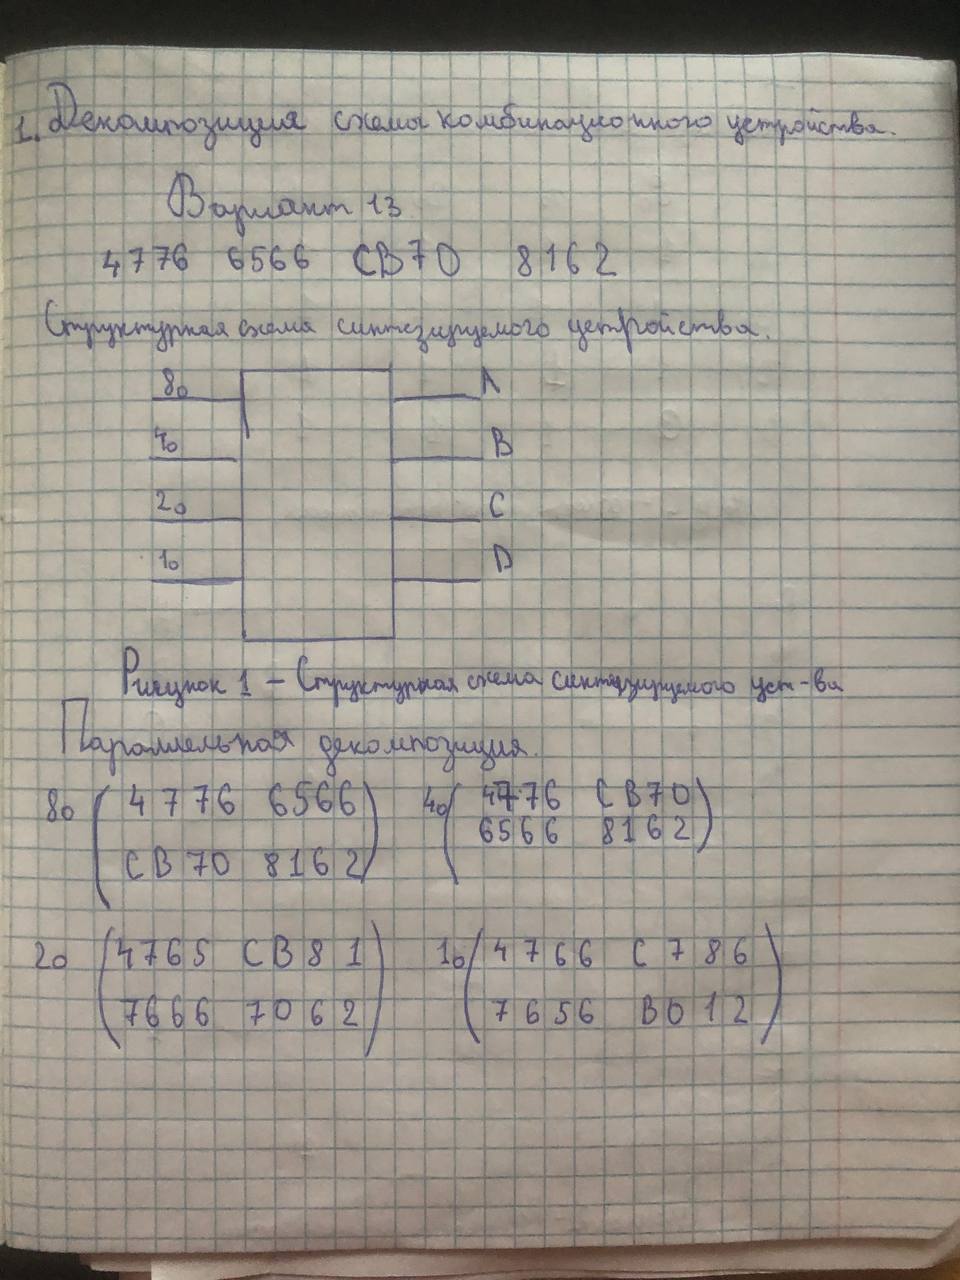 1. Декомпозиция схемы комбинационного устройства.
Вариант 13
4776 6566 CB70 8162
Структурная схема синтезируемого устройства.
8₀ A
4₀ B
2₀ C
1₀ D
Рисунок 1 – Структурная схема синтезируемого уст-ва
Параллельная декомпозиция.
8₀ (4776 6566 4₀ (4776 CB70)
CB70 8162) 6566 8162
2₀ (4765 CB81 1₀ (4766 C786
7666 7062) 7656 B012)